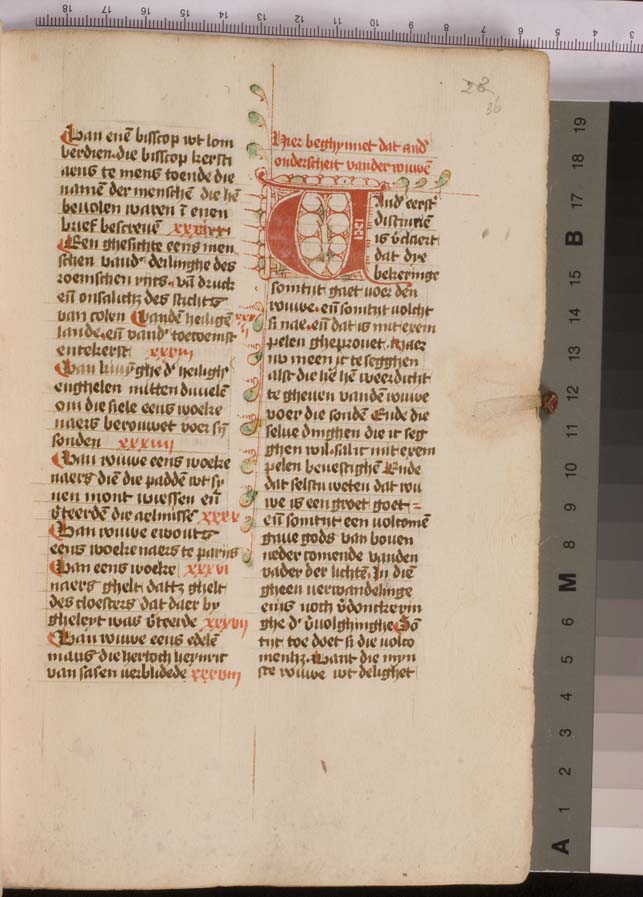 28
36
Van enē bisscop wt lom
berdien. die bisscop kersti
aens te mens toende die
namē der menschē die hē
beuolen waren ī enen
brief bescreuē xxxij
Een ghesichte eens men
schen vand' deilinghe des
roemschen rijcs. vā druck
eñ onsalicħ des stichts
van colen Vandē heiligē
lande. eñ vand' toecoemst
entekerst xxxiij
Van d' heiligh'
enghelen mitten duuelē
om die siele eens woeke
naers berouwet voer sij
sonden xxxiiij
Van rouwe eens woeke
naers diē die paddē wt si
nen mont wiessen eñ
v'teerdē die aelmissē xxxv
Van rouwe ewouts
eens woekenaers te parijs
Van eens woeke xxxvi
naers ghelt dattz ghelt
des cloesters dat daer by
gheleyt was v'teerde xxxvij
Van rouwe eens edelē
mans die hertoch heynric
van sasen verblidede xxxviij
Hier beghynnet dat and'
onderscheit vander rouwē
And' eerst'
distinxiē
is v'claert
dat dye
bekeringe
somtijt gaet voer den
rouwe. eñ somtijt volcht
si nae. eñ dat is mit exem
pelen gheprouet. Maer
nv meen ic te segghen
alst die hē hē weerdicht
te gheuen vandē rouwe
voer die sondē Ende die
selue dinghen die ic seg
ghen wil. sal ic mit exem
pelen beuestighē Ende
dat selstu weten dat rou
we is een groet goet
eñ somtijt een volcomē
gaue gods van bouen
neder comende vanden
vader der lichtē. In diē
gheen verwandelinge
enis noch v'donckerin
ghe d' v'wolghinghe So
tijt toe doet si die volco
menħ. Want die myn
ste rouwe wt delighet